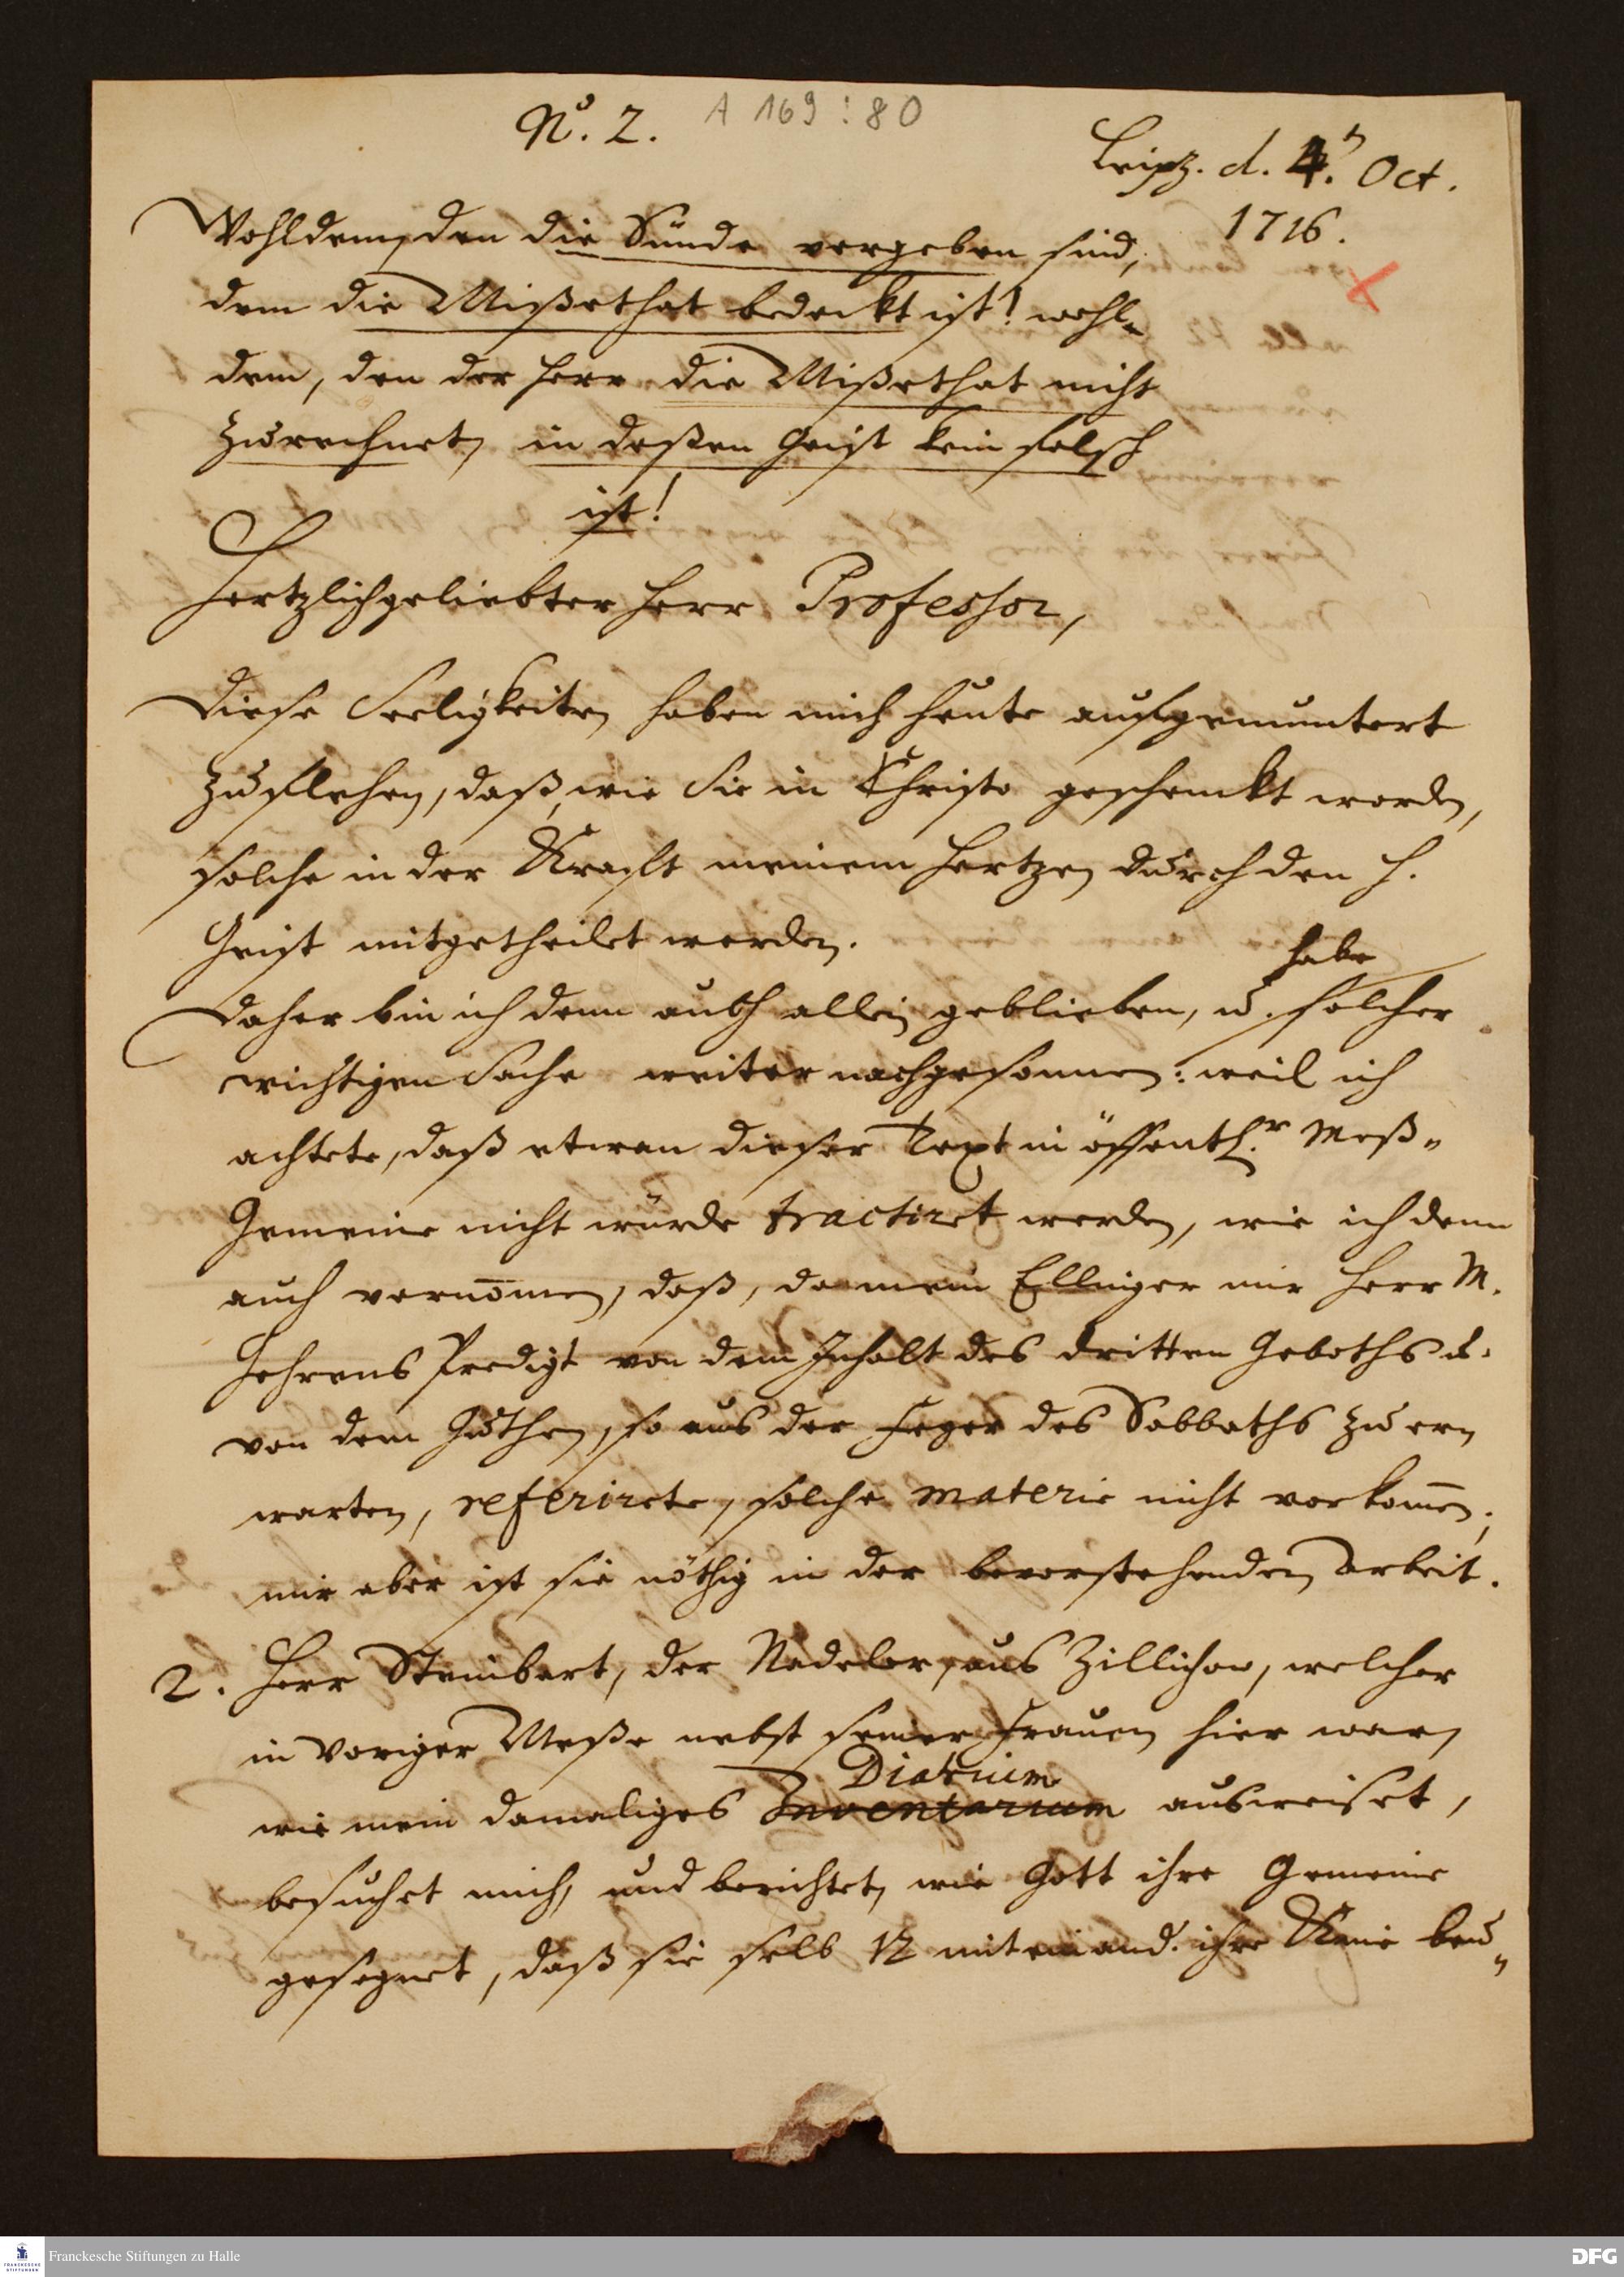 No. 2. A 169 : 80
Leipz. d. 4. Oct.
1716.
Wohl dem, dem die Sünde vergeben sind,
dem die Mißethat bedeckt ist! wohl-
dem, dem der Herr die Mißethat nicht
zurechnet, in deßen Geist kein falsch
ist!
Hertzlichgeliebter Herr Professor,
Diese Seeligkeiten haben mich heute aufgemuntert
zu flehen, daß, wie Sie in Christo geschenckt worden,
solche in der Krafft meinem Hertzen durch den H.
Geist mitgetheilet werden.
Daher bin ich denn auch allein geblieben, u. habe solcher
wichtigen Sache weiter nachgesonnen: weil ich
achtete, daß etwan dieser Text in öffentl.r Meß-
Gemeine nicht würde tractiret werden, wie ich denn
auch vernom̅en, daß, da mein Ellinger mir Herr M.
Gehrens Predigt von dem Inhalt des dritten Geboths u.
von dem Guthen, so aus der Feyer des Sabbaths zu er-
warten, referirete, solche materie nicht vorkom̅en;
mir aber ist sie nöthig in der bevorstehenden Arbeit.
2. Herr Steinbart, der Nadeler, aus Zillichow, welcher
in voriger Meße nebst seiner Frauen hier war,
Diarium
wie mein damaliges Inventarium ausweiset,
besuchet mich, und berichtet, wie Gott ihre Gemeine
gesegnet, daß sie selb 12 mit einand. ihre Knie beu-
Franckesche Stiftungen zu Halle
FRANCKESCHE STIFTUNGEN
DFG